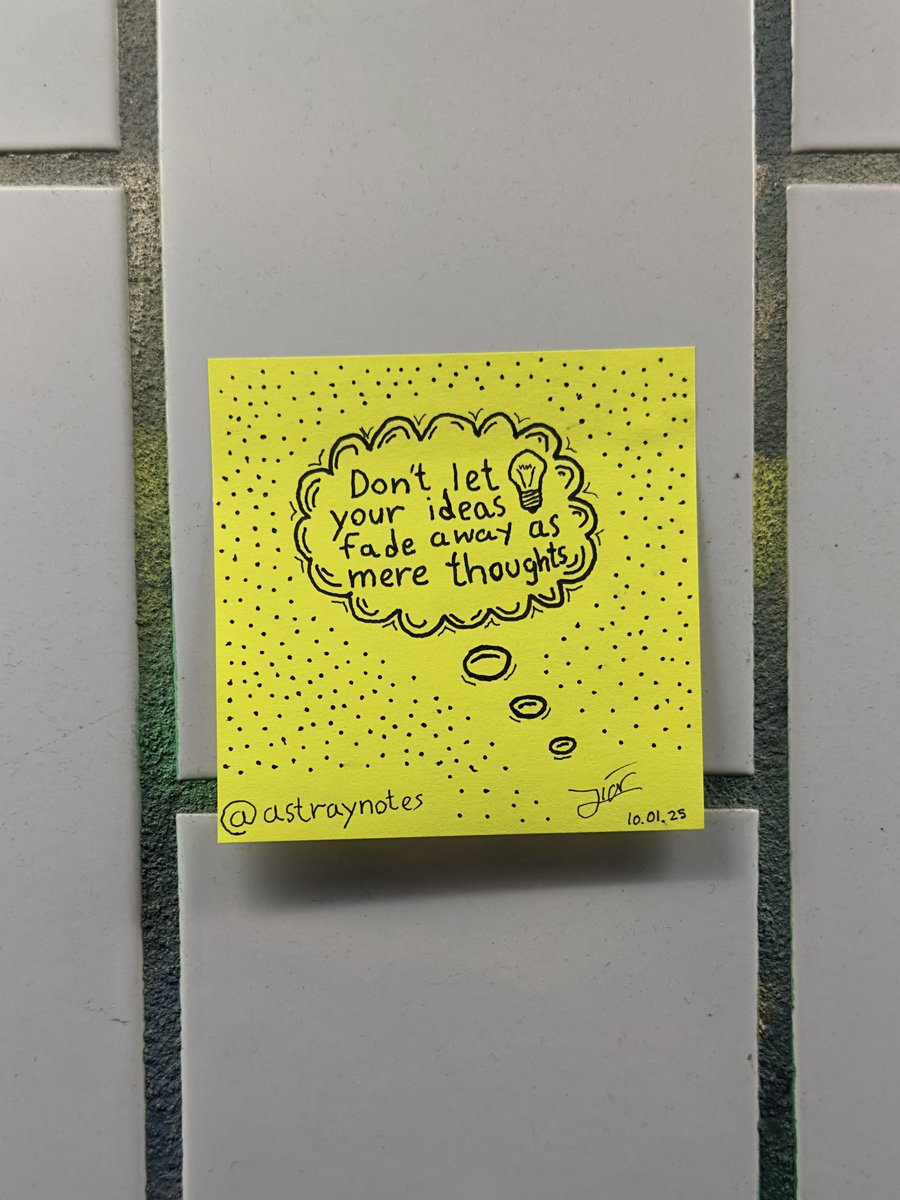 Don't let
your ideas
fade away as
mere thoughts
@astraynotes
10.01.25